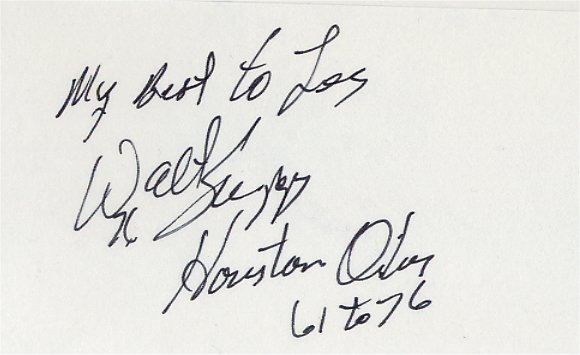 My Best to Les
Walt Suggs
Houston Oilers
61 to 76